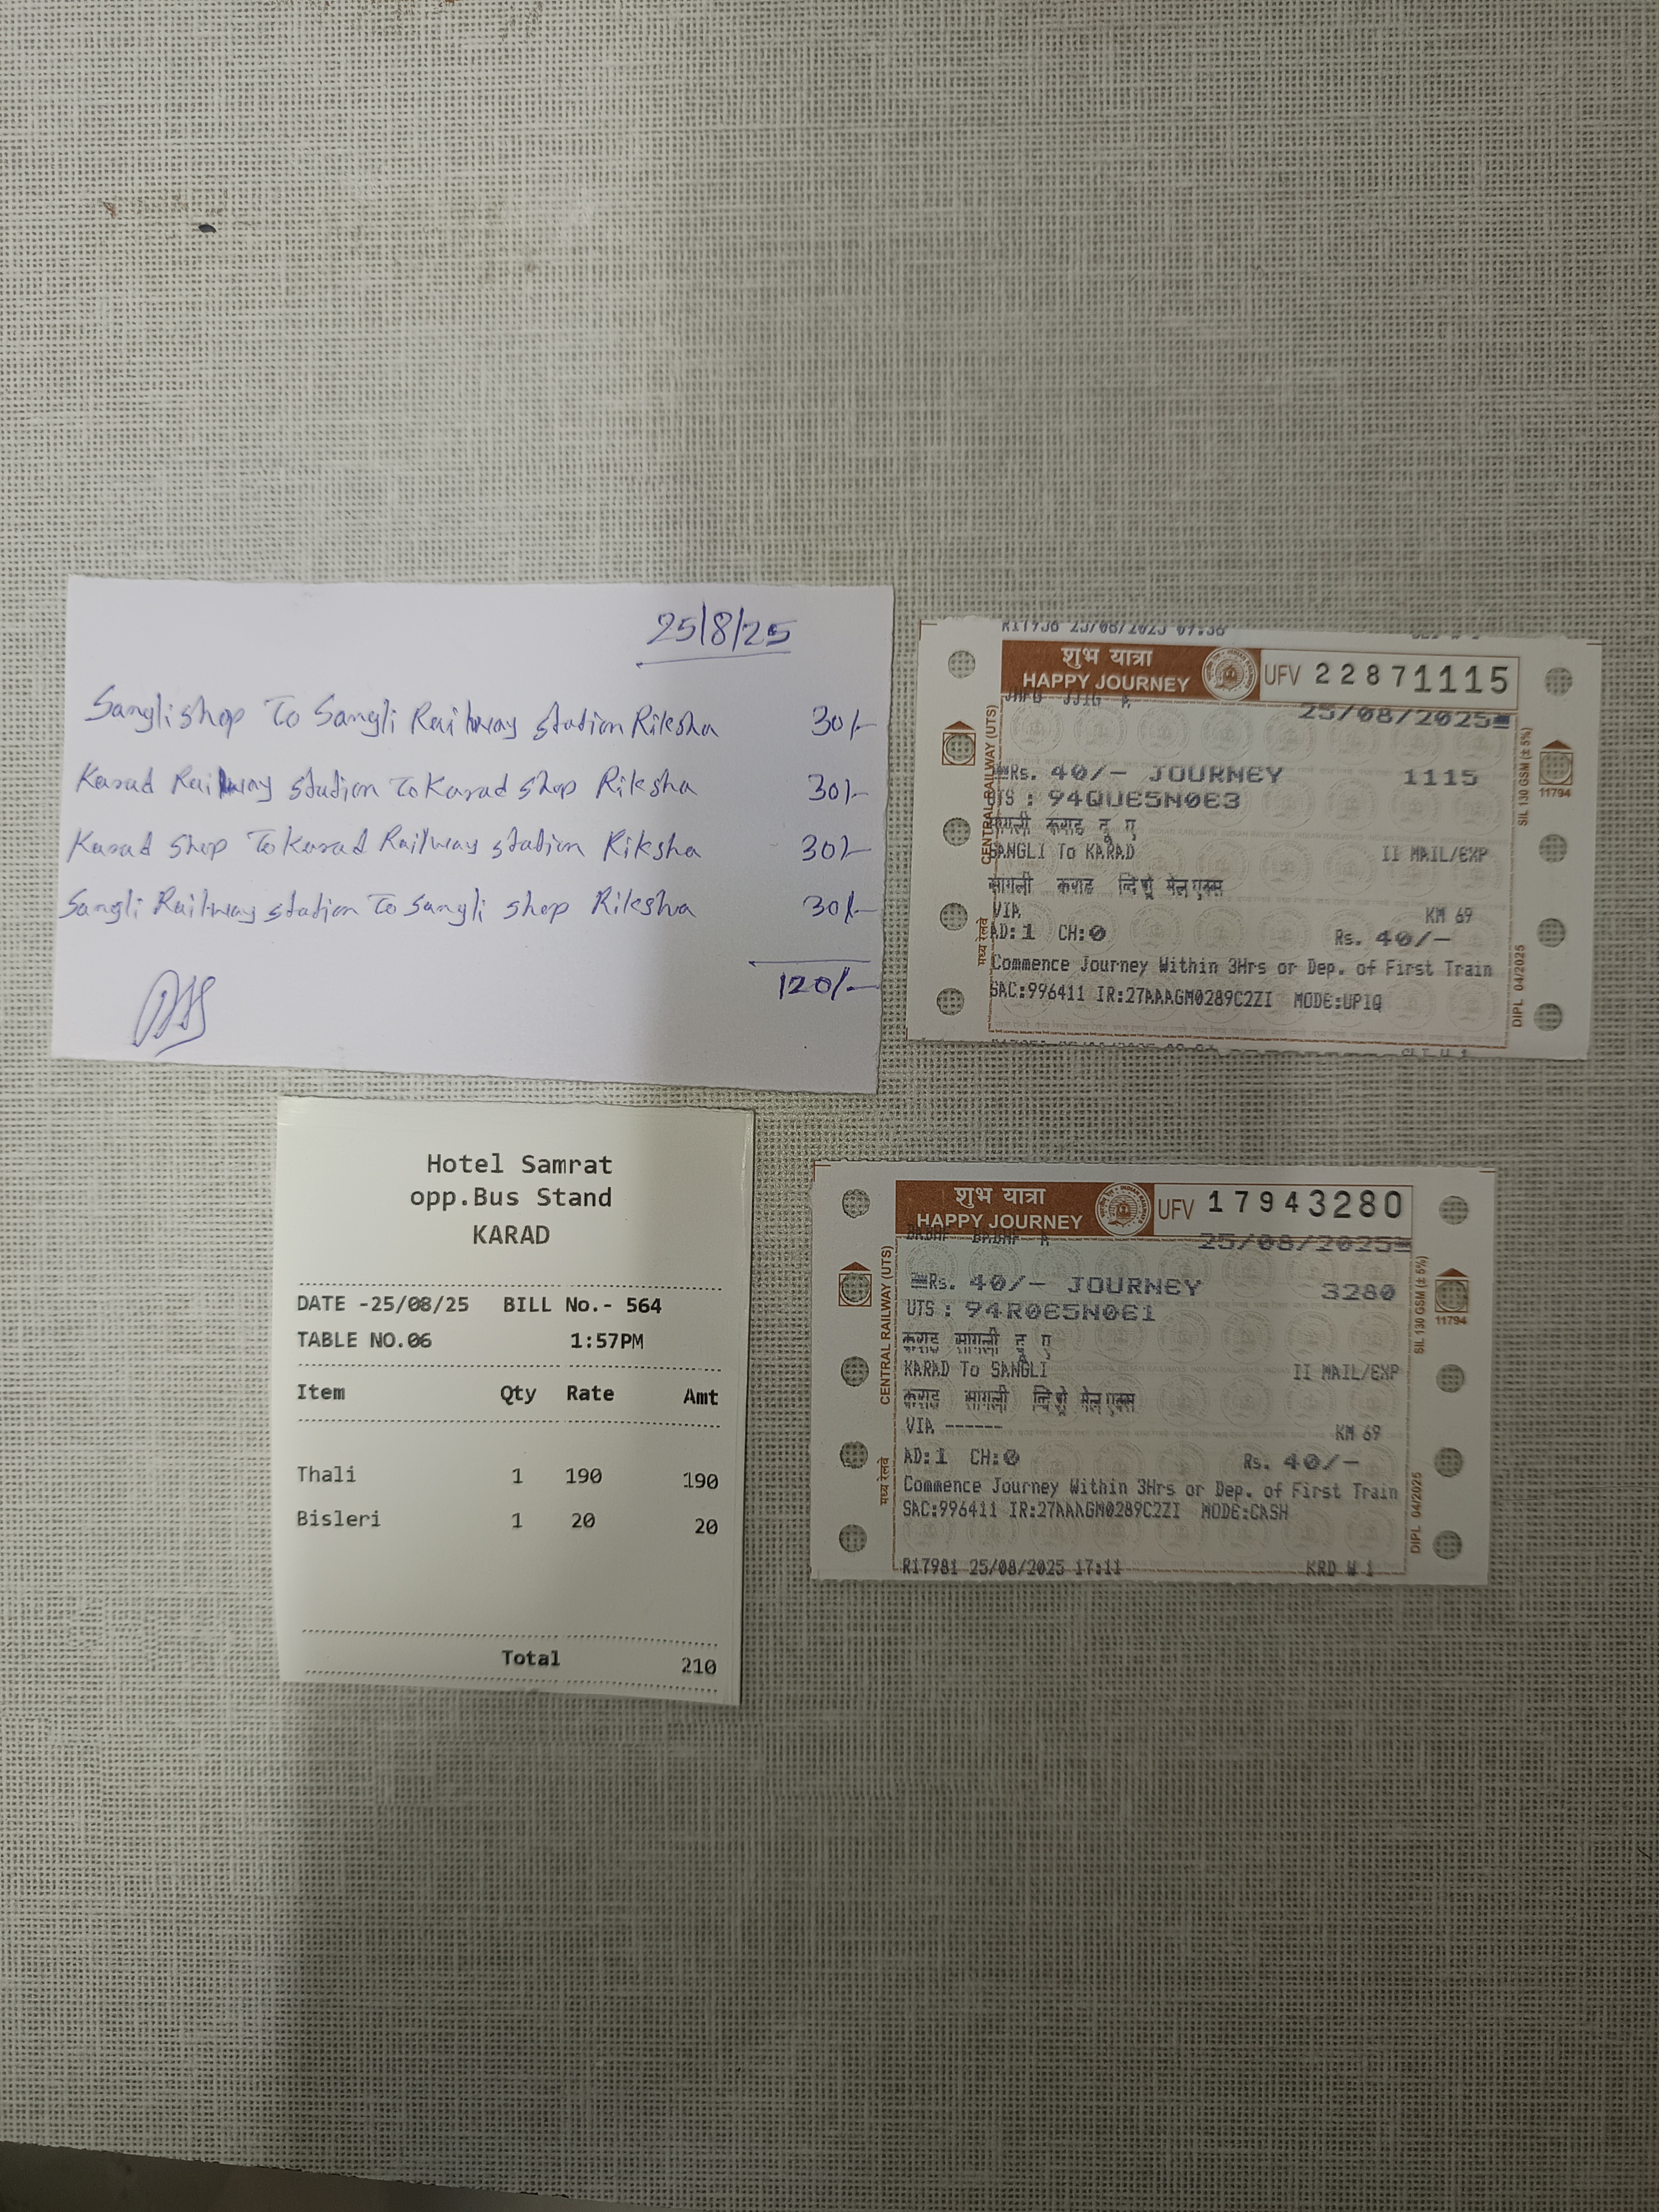 25/8/25
Sangli shop To Sangli Railway station Riksha 30/-
Karad Railway station To Karad shop Riksha 30/-
Karad shop To Karad Railway station Riksha 30/-
Sangli Railway station To Sangli shop Riksha 30/-
120/-
शुभ यात्रा
HAPPY JOURNEY
UFV 22871115
25/08/2025
Rs. 40/- JOURNEY 1115
UTS : 94QUE5N0E3
सांगली कराड दू ए
SANGLI To KARAD II MAIL/EXP
सांगली कराड मेल एक्स
VIA
KM 69
AD:1 CH:0 Rs. 40/-
Commence Journey Within 3Hrs or Dep. of First Train
SAC:996411 IR:27AAAGM0289C2ZI MODE:UPIQ
CENTRAL RAILWAY (UTS)
मध्य रेलवे
SIL 130 GSM (± 5%)
11794
DIPL 04/2025
Hotel Samrat
opp.Bus Stand
KARAD
DATE -25/08/25 BILL No.- 564
TABLE NO.06 1:57PM
Item Qty Rate Amt
Thali 1 190 190
Bisleri 1 20 20
Total 210
शुभ यात्रा
HAPPY JOURNEY
UFV 17943280
25/08/2025
Rs. 40/- JOURNEY 3280
UTS : 94R0E5N0E1
कराड सांगली दू ए
KARAD To SANGLI II MAIL/EXP
कराड सांगली मेल एक्स
VIA ------
KM 69
AD:1 CH:0 Rs. 40/-
Commence Journey Within 3Hrs or Dep. of First Train
SAC:996411 IR:27AAAGM0289C2ZI MODE:CASH
R17981 25/08/2025 17:11 KRD W 1
CENTRAL RAILWAY (UTS)
मध्य रेलवे
SIL 130 GSM (± 5%)
11794
DIPL 04/2025